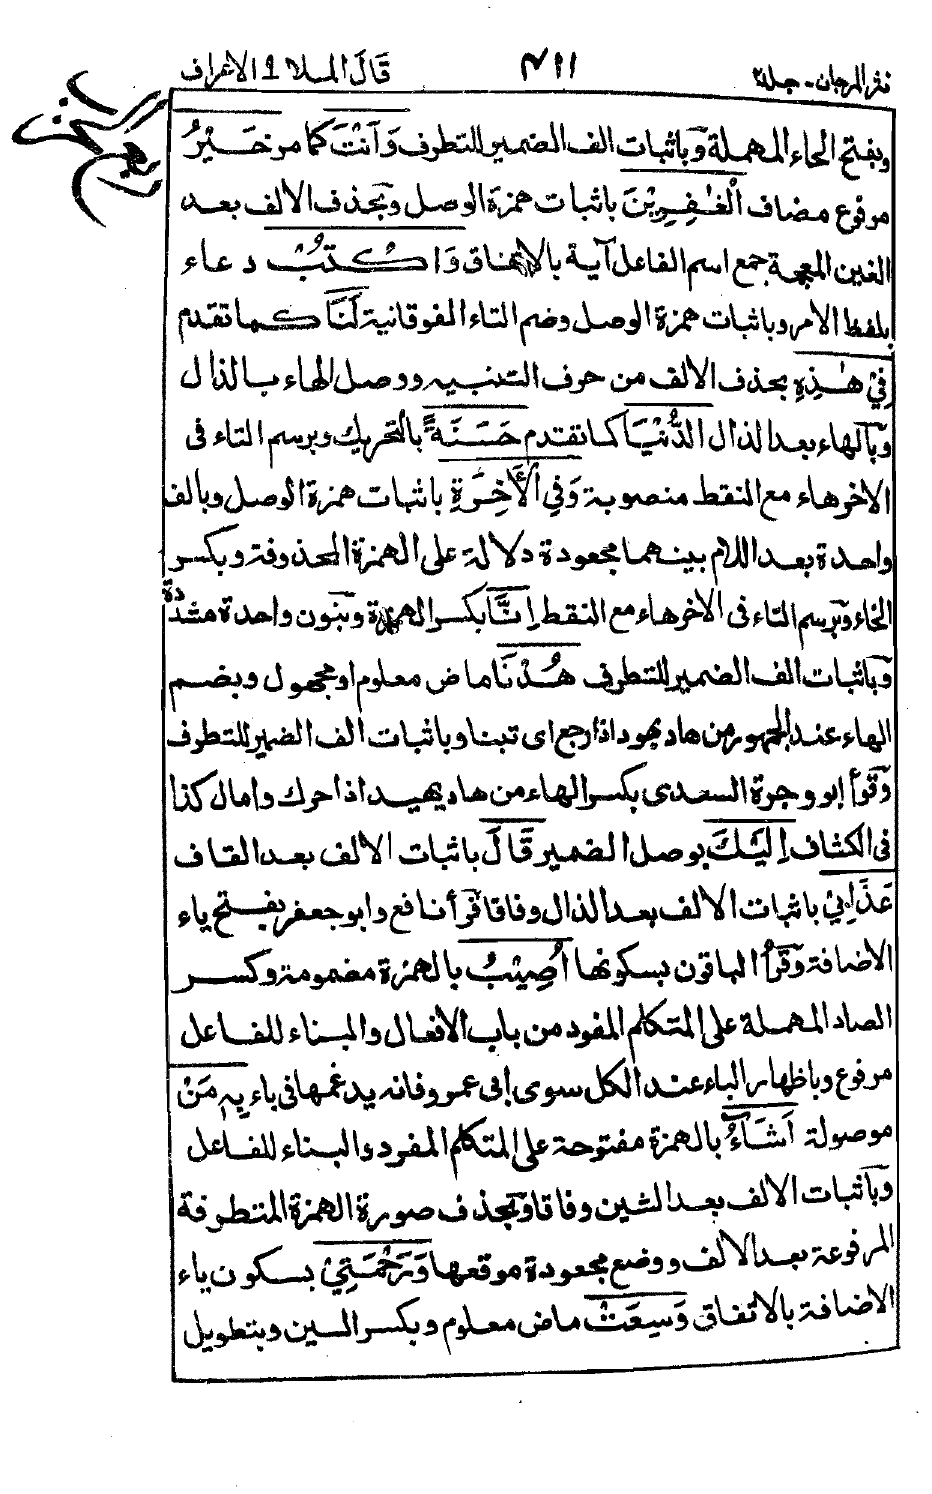 نثر المرجان - جلد ٢
٤١١
قال الملا ٩ الاعراف
وبفتح الحاء المهملة وباثبات الف الضمير للتطرف وَاَنْتَ كما مر خَيْرُ
مرفوع مضاف الْغٰفِرِيْنَ باثبات همزة الوصل وبحذف الالف بعد
الغين المعجمة جمع اسم الفاعل آية بالاتفاق وَاكْتُبْ دعاء
بلفظ الامر وباثبات همزة الوصل وضم التاء الفوقانية لَنَا كما تقدم
فِيْ هٰذِهِ بحذف الالف من حرف التنبيه ووصل الهاء بالذال
وبالهاء بعد الذال الدُّنْيَا كما تقدم حَسَنَةً بالتحريك وبرسم التاء فى
الاخر هاء مع النقط منصوبة وَفِي الْاٰخِرَةِ باثبات همزة الوصل وبالف
واحدة بعد اللام بينهما مجعودة دلالة على الهمزة المحذوفة وبكسر
الخاء وبرسم التاء فى الاخر هاء مع النقط اِنَّا بكسر الهمزة وبنون واحدة مشددة
وباثبات الف الضمير للتطرف هُدْنَا ماض معلوم او مجهول وبضم
الهاء عند الجمهور من هاد يهود اذا رجع اى تبنا وباثبات الف الضمير للتطرف
وقرأ ابو وجرة السعدى بكسر الهاء من هاد يهيد اذا حرك وامال كذا
فى الكشاف اِلَيْكَ بوصل الضمير قَالَ باثبات الالف بعد القاف
عَذَابِيْ باثبات الالف بعد الذال وفاقا قرأ نافع وابو جعفر بفتح ياء
الاضافة وقرأ الباقون بسكونها اُصِيْبُ بالهمزة مضمومة وكسر
الصاد المهملة على المتكلم المفرد من باب الافعال والبناء للفاعل
مرفوع وباظهار الباء عند الكل سوى ابى عمرو فانه يدغمها فى باء بِهٖ مَنْ
موصولة اَشَآءُ بالهمزة مفتوحة على المتكلم المفرد والبناء للفاعل
وباثبات الالف بعد الشين وفاقا وبحذف صورة الهمزة المتطرفة
المرفوعة بعد الالف ووضع مجعودة موقعها وَرَحْمَتِيْ بسكون ياء
الاضافة بالاتفاق وَسِعَتْ ماض معلوم وبكسر السين وبتطويل